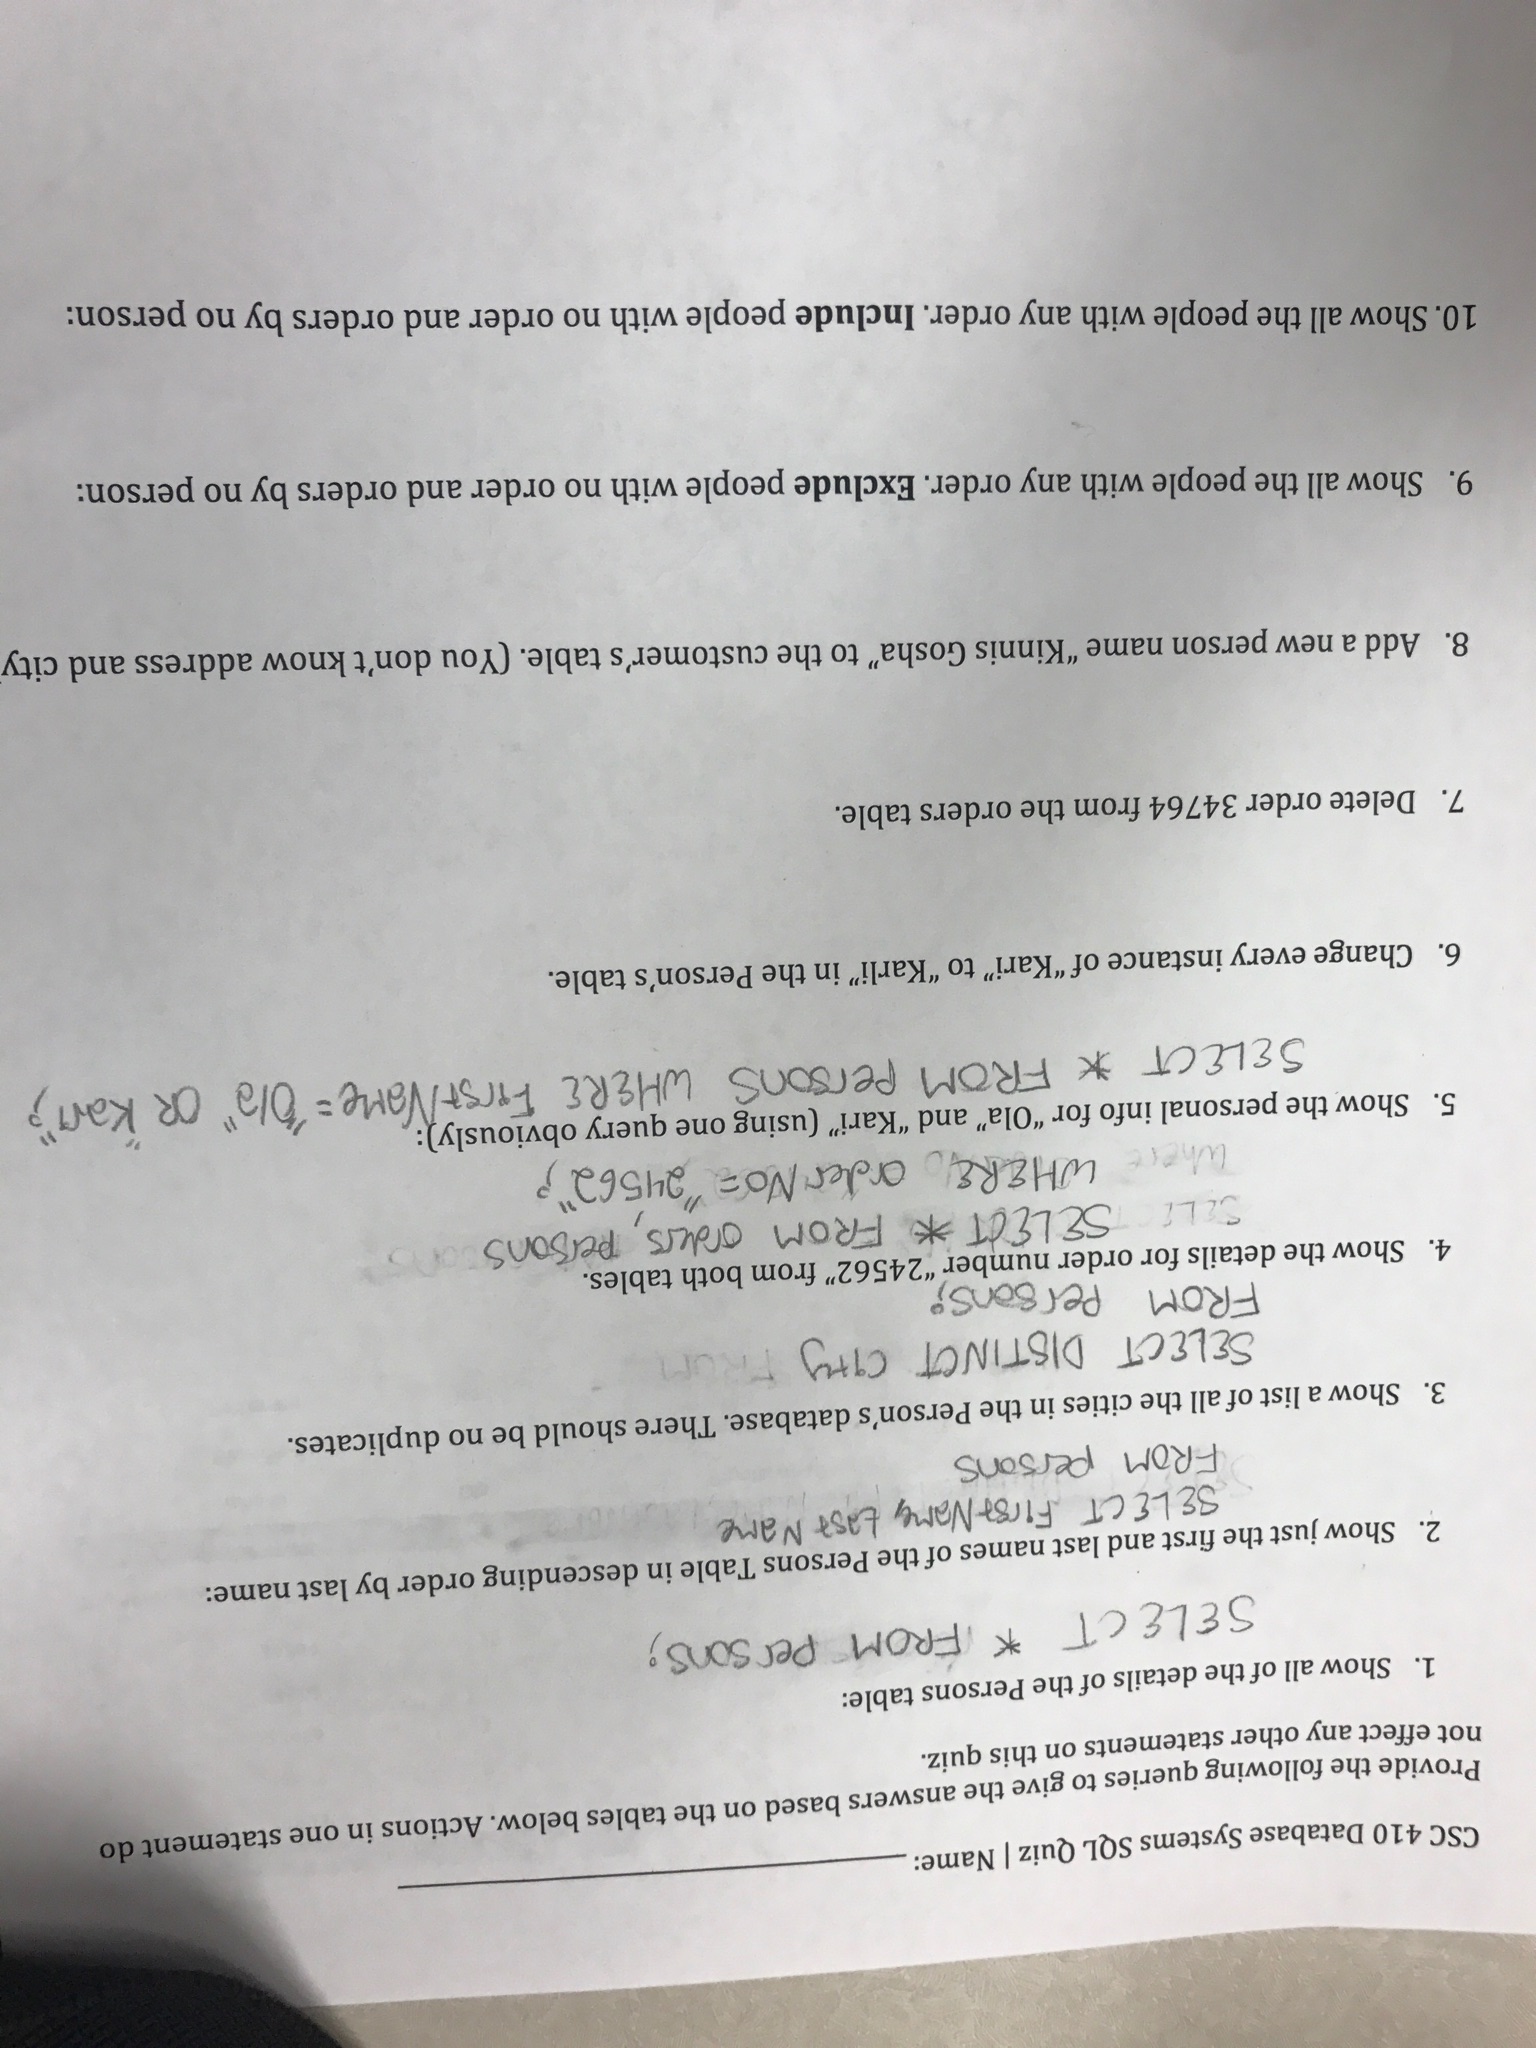 CSC 410 Database Systems SQL Quiz | Name:
Provide the following queries to give the answers based on the tables below. Actions in one statement do
not effect any other statements on this quiz.
1. Show all of the details of the Persons table:
SELECT * FROM persons;
2. Show just the first and last names of the Persons Table in descending order by last name:
SELECT FirstName, LastName
FROM persons
3. Show a list of all the cities in the Person's database. There should be no duplicates.
SELECT DISTINCT city FROM
FROM Persons;
4. Show the details for order number "24562" from both tables.
SELECT SELECT * FROM orders, persons
Where WHERE orderNo = "24562";
5. Show the personal info for "Ola" and "Kari" (using one query obviously):
SELECT * FROM persons WHERE FirstName = "Ola" OR "Kari";
6. Change every instance of "Kari" to "Karli" in the Person's table.
7. Delete order 34764 from the orders table.
8. Add a new person name "Kinnis Gosha" to the customer's table. (You don't know address and city
9. Show all the people with any order. Exclude people with no order and orders by no person:
10. Show all the people with any order. Include people with no order and orders by no person: